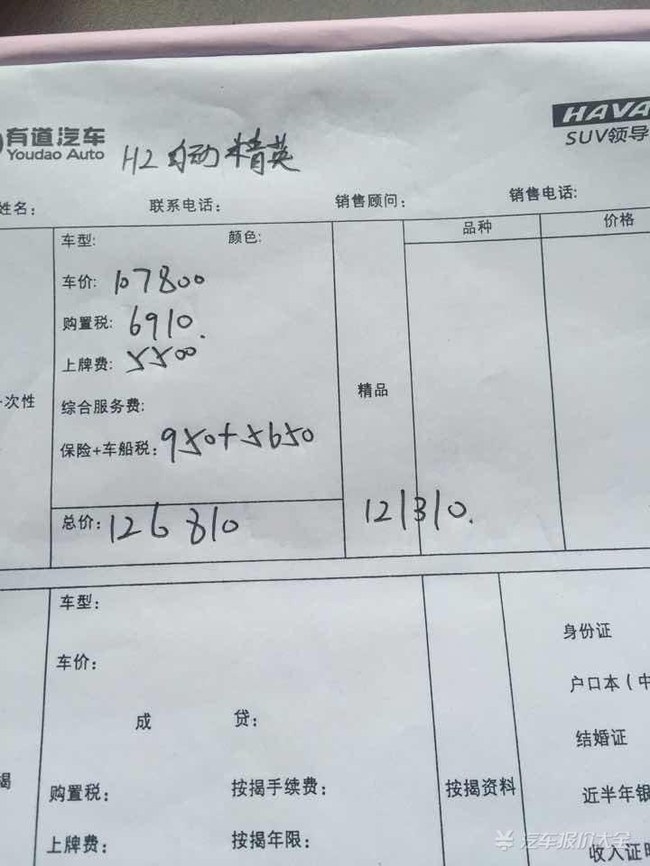 有道汽车
Youdao Auto
H2 自动精英
HAVA
SUV领导
姓名： 联系电话： 销售顾问： 销售电话:
车型: 颜色: 品种 价格
车价: 107800
购置税: 6910.
上牌费: 5500
次性 精品
综合服务费:
保险+车船税: 950+5650
总价: 126810 121310.
车型：
身份证
车价：
户口本（中
成 贷：
结婚证
揭 购置税： 按揭手续费： 按揭资料 近半年银
上牌费： 按揭年限： 收入证明
汽车报价大全